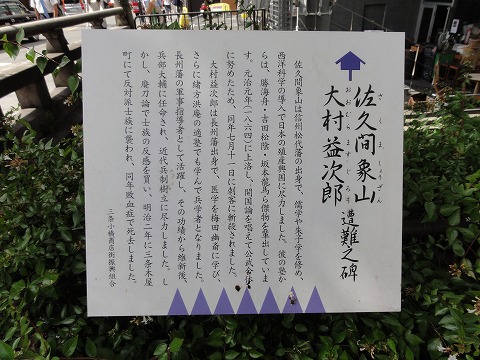 佐久間象山
さくましょうざん
大村益次郎
おおむらますじろう
遭難之碑
佐久間象山は信州松代藩の出身で、儒学や朱子学を修め、
西洋科学の導入で日本の殖産興国に尽力しました。彼の塾か
らは、勝海舟・吉田松陰・坂本龍馬ら傑物を輩出していま
す。元治元年(一八六四)に上洛し、開国論を唱えて公武合体
に努めたため、同年七月十一日に刺客に斬殺されました。
大村益次郎は長州藩出身で、医学を梅田幽斎に学び、
さらに緒方洪庵の適塾でも学んで兵学者となりました。
長州藩の軍事指導者として活躍し、その功績から維新後、
兵部大輔に任命され、近代兵制樹立に尽力しました。し
かし、廃刀論で士族の反感を買い、明治二年に三条木屋
町にて反対派士族に襲われ、同年敗血症で死去しました。
三条小橋商店街振興組合